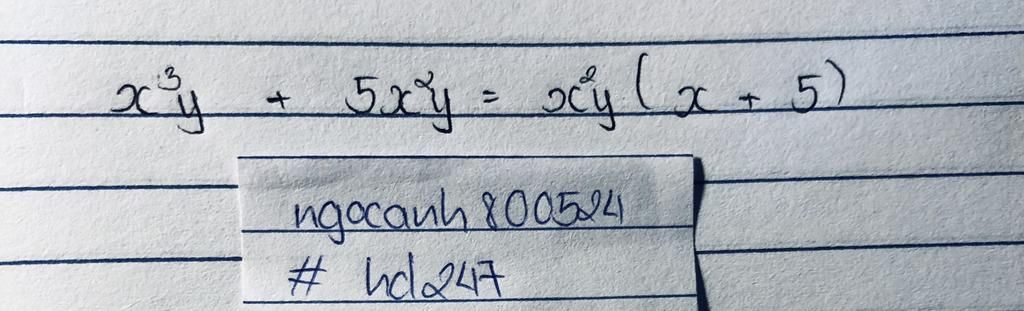 x³y + 5x²y = x²y ( x + 5 )
ngocanh 800524
# hd247